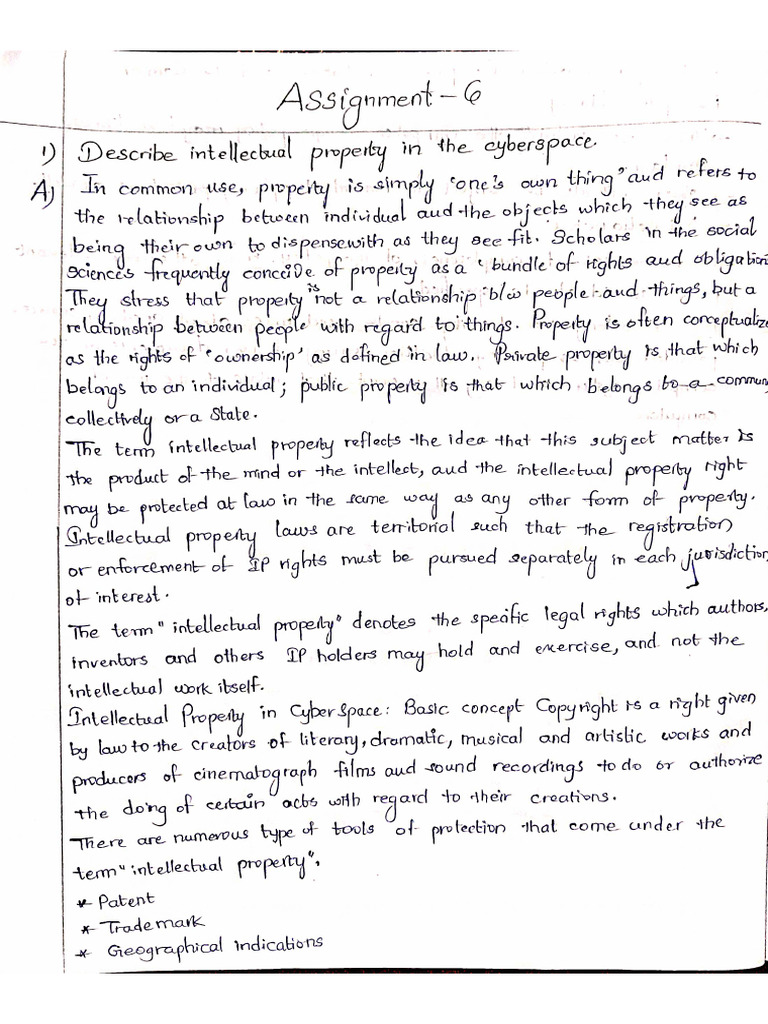 Assignment - 6
1) Describe intellectual property in the cyberspace.
A) In common use, property is simply 'one's own thing' and refers to
the relationship between individual and the objects which they see as
being their own to dispense with as they see fit. Scholars in the social
sciences frequently conceive of property as a 'bundle of rights and obligation
They stress that property is not a relationship b/w people and things, but a
relationship between people with regard to things. Property is often conceptualize
as the rights of 'ownership' as defined in law. Private property is that which
belongs to an individual; public property is that which belongs to a commun
collectively or a State.
The term intellectual property reflects the idea that this subject matter is
the product of the mind or the intellect, and the intellectual property right
may be protected at law in the same way as any other form of property.
Intellectual property laws are territorial such that the registration
or enforcement of IP rights must be pursued separately in each jurisdiction
of interest.
The term "intellectual property" denotes the specific legal rights which authors,
inventors and others IP holders may hold and exercise, and not the
intellectual work itself.
Intellectual Property in Cyber Space: Basic concept Copyright is a right given
by law to the creators of literary, dramatic, musical and artistic works and
producers of cinematograph films and sound recordings to do or authorize
the doing of certain acts with regard to their creations.
There are numerous type of tools of protection that come under the
term "intellectual property".
* Patent
* Trademark
* Geographical indications